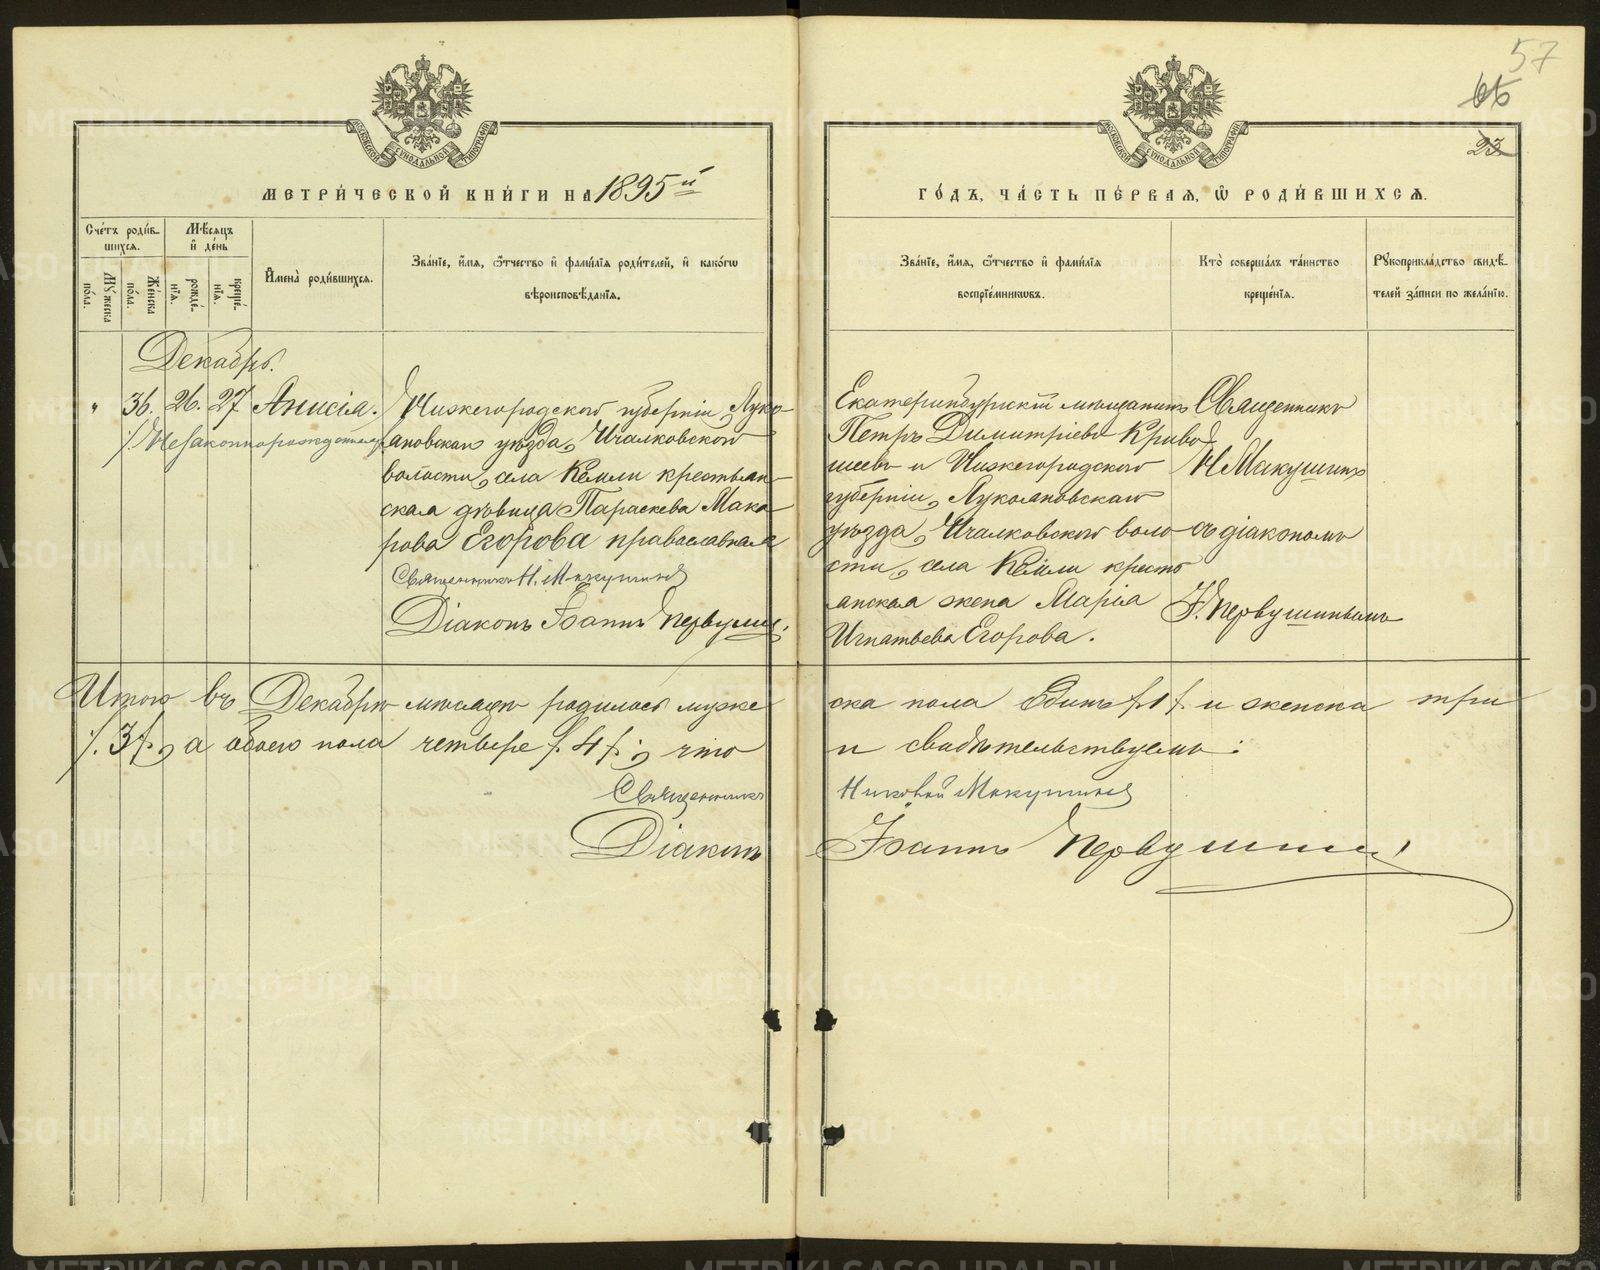 57
66
23
МОСКОВСКОЙ СѴНОДАЛЬНОЙ ТИПОГРАФІИ
МОСКОВСКОЙ СѴНОДАЛЬНОЙ ТИПОГРАФІИ
МЕТРИ́ЧЕСКОЙ КНИ́ГИ НА 1895й
ГО́ДЪ, ЧА́СТЬ ПЕ́РВАЯ, Ѡ҆ РОДИ́ВШИХСЯ.
Сче́тъ роди́в-
шихся.
Му́жеска по́ла.
Же́нска по́ла.
Мѣ́сяцъ и҆ де́нь
рожде́-
нїя.
креще́-
нїя.
И҆мена̀ роди́вшихся.
Зва́нїе, и҆́мя, ѻ҆́тчество и҆ фами́лїя роди́телей, и҆ како́гѡ
вѣроисповѣ́данїя.
Зва́нїе, и҆́мя, ѻ҆́тчество и҆ фами́лїя
воспрїе́мникѡвъ.
Кто̀ соверша́лъ та́инство
креще́нїя.
Рꙋкоприкла́дство свидѣ́-
телей за́писи по жела́нїю.
Декабрь.
" 36. 26. 27 Анисія.
/. Незаконнорожденная
Нижегородской губерніи Луко-
яновскаго уѣзда, Ичалковской
волости, села Кемли крестьян-
ская дѣвица Параскева Мака
рова Егорова православная
Священникъ Н. Макушинъ
Діаконъ Іоаннъ Первушинъ
Екатеринбургскій мѣщанинъ
Петръ Димитріевъ Криво
шеевъ и Нижегородской
губерніи, Лукояновскаго
уѣзда, Ичалковской воло
сти, села Кемли кресть
янская жена Марія
Игнатьева Егорова.
Священникъ
Н Макушинъ
съ діакономъ
І. Первушинымъ
Итого въ Декабрѣ мѣсяцѣ родилось муже
ска пола Одинъ /.1/. и женска три
/.3/., а обоего пола четверо /.4/.; что
и свидѣтельствуемъ:
Священникъ
Николай Макушинъ
Діаконъ
Іоаннъ Первушинъ
METRIKI.GASO-URAL.RU